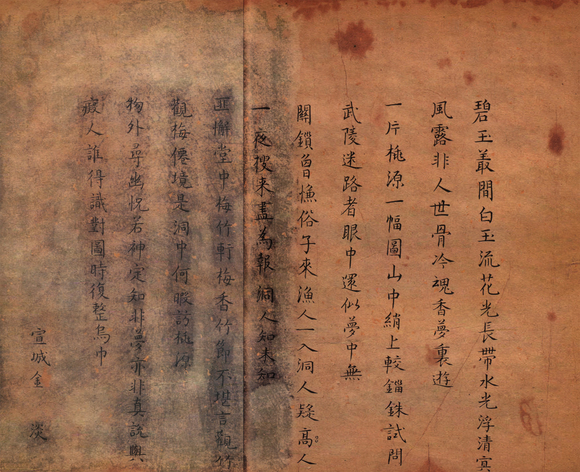 碧玉叢間白玉流花光長帶水光浮清
風露非人世骨冷魂香夢裏遊
一片桃源一幅圖山中綃上較錙銖試問
武陵迷路者眼中還似夢中無
關鎖曾俗子來漁人一入洞人疑髙人
一夜搜来盡為報洞人知未知
懶堂中梅竹軒梅香竹節不堪言觀竹
觀梅僊境是洞中何暇訪桃源
物外尋幽恍若神定知非夢亦非真說與
癡人誰得識對圖時復整烏巾
宣城金 淡